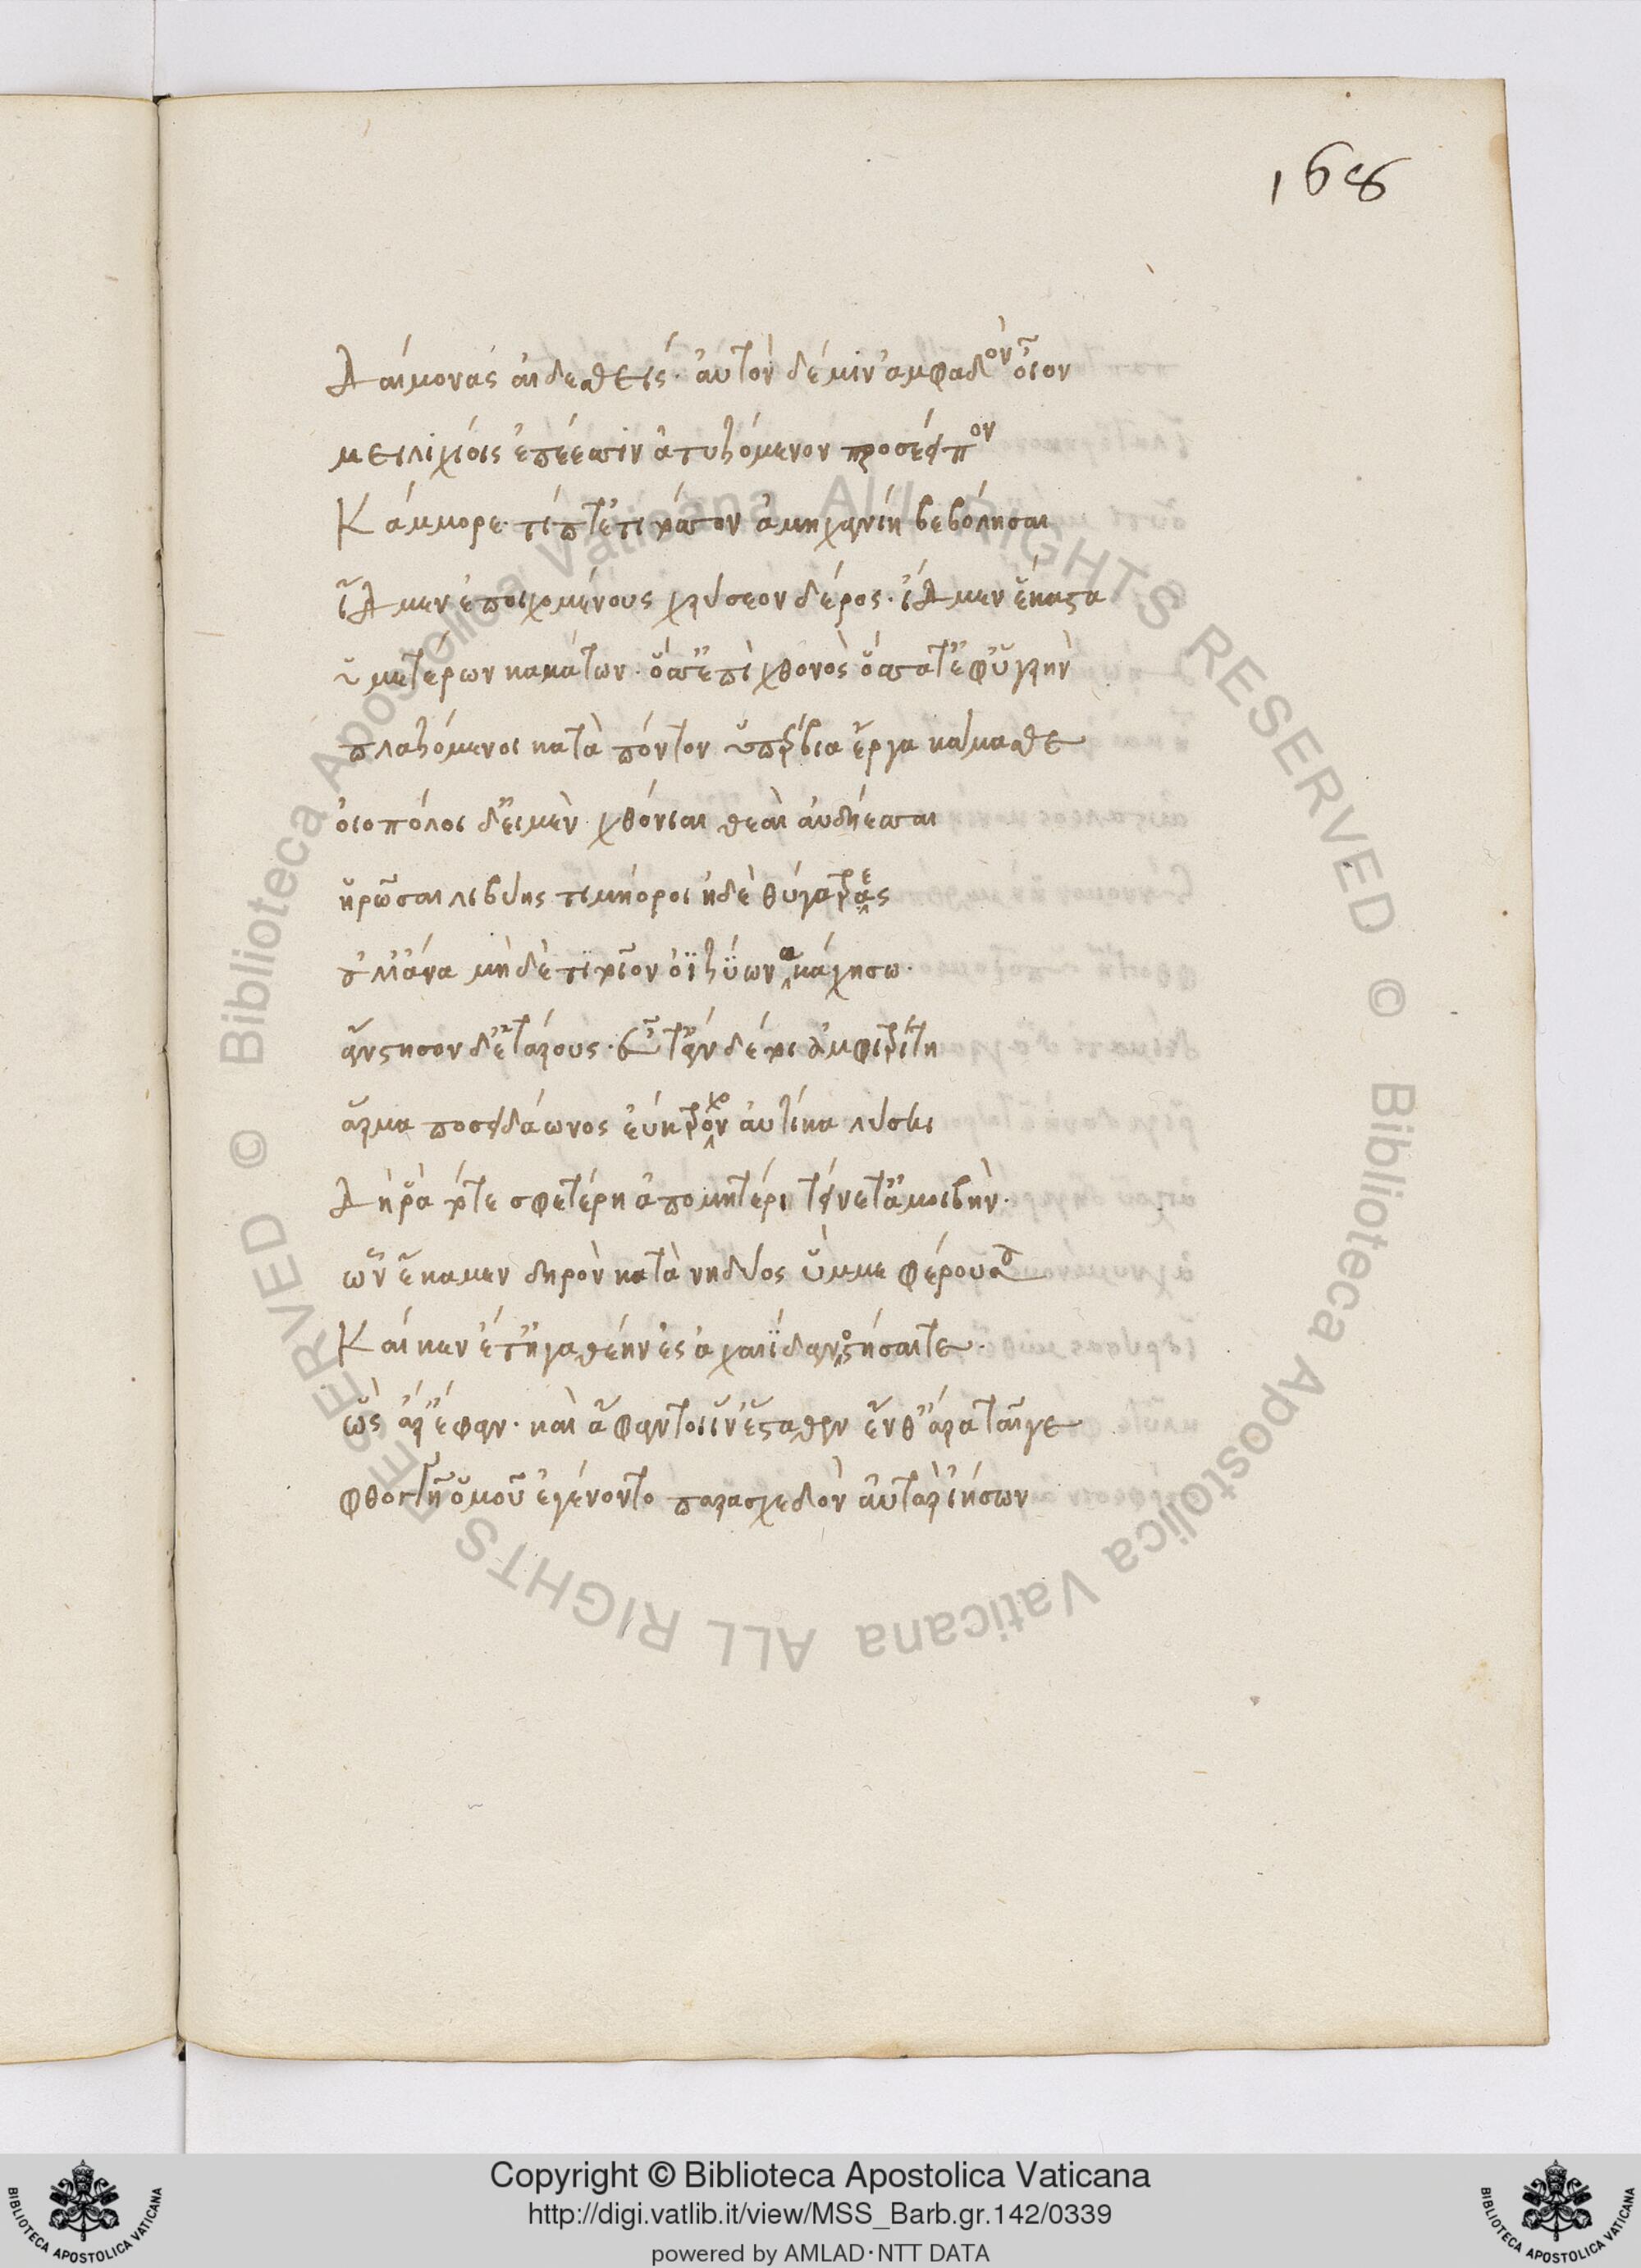 168
Δαίμονας αἰδεσθείς· αὐτὸν δέ μιν ἀμφαδὸν οἶον
μειλιχίοις ἐπέεσσιν ἀτυζόμενον προσέειπον
Κάμμορε τίπτ' ἔτι τόσσον ἀμηχανίη βεβόλησαι
ἴδμεν ἐποιχομένους χρύσεον δέρος· ἴδμεν ἕκαστα
ὑμετέρων καμάτων· ὅσσ' ἐπὶ χθονὸς ὅσσα τ' ἐφ' ὑγρὴν
πλαζόμενοι κατὰ πόντον ὑπέρβια ἔργα κάμασθε
οἰοπόλοι δ' εἰμὲν χθόνιαι θεαὶ αὐδήεσσαι
ἡρῶσσαι λιβύης τιμήοροι ἠδὲ θύγατρες
ἀλλ' ἄνα μὴδ' ἔτι τοῖον ὀϊζύων ἀκάχησο·
ἄνστησον δ' ἑτάρους· εὖτ' ἂν δέ τοι ἀμφιτρίτη
ἅρμα ποσειδάωνος ἐύτροχον αὐτίκα λύσει
Δή ῥα τότε σφετέρη ἀπὸ μητέρι τείνετ' ἀμοιβὴν·
ὧν ἔκαμεν δηρὸν κατὰ νηδύος ὔμμε φέρουσα
Καί κεν ἔτ' ἠγαθέην ἐς ἀχαιΐδα νοστήσαιτε·
ὣς ἄρ' ἔφαν· καὶ ἄφαντοι ἵν' ἔσταθεν ἔνθ' ἄρα ταῖγε
φθογγῇ ὁμοῦ ἐγένοντο παρασχεδὸν αὐτὰρ ἰήσων
© Biblioteca Apostolica Vaticana ALL RIGHTS RESERVED © Biblioteca Apostolica Vaticana ALL RIGHTS RESERVED
Copyright © Biblioteca Apostolica Vaticana
http://digi.vatlib.it/view/MSS_Barb.gr.142/0339
powered by AMLAD·NTT DATA
BIBLIOTECA APOSTOLICA VATICANA
BIBLIOTECA APOSTOLICA VATICANA